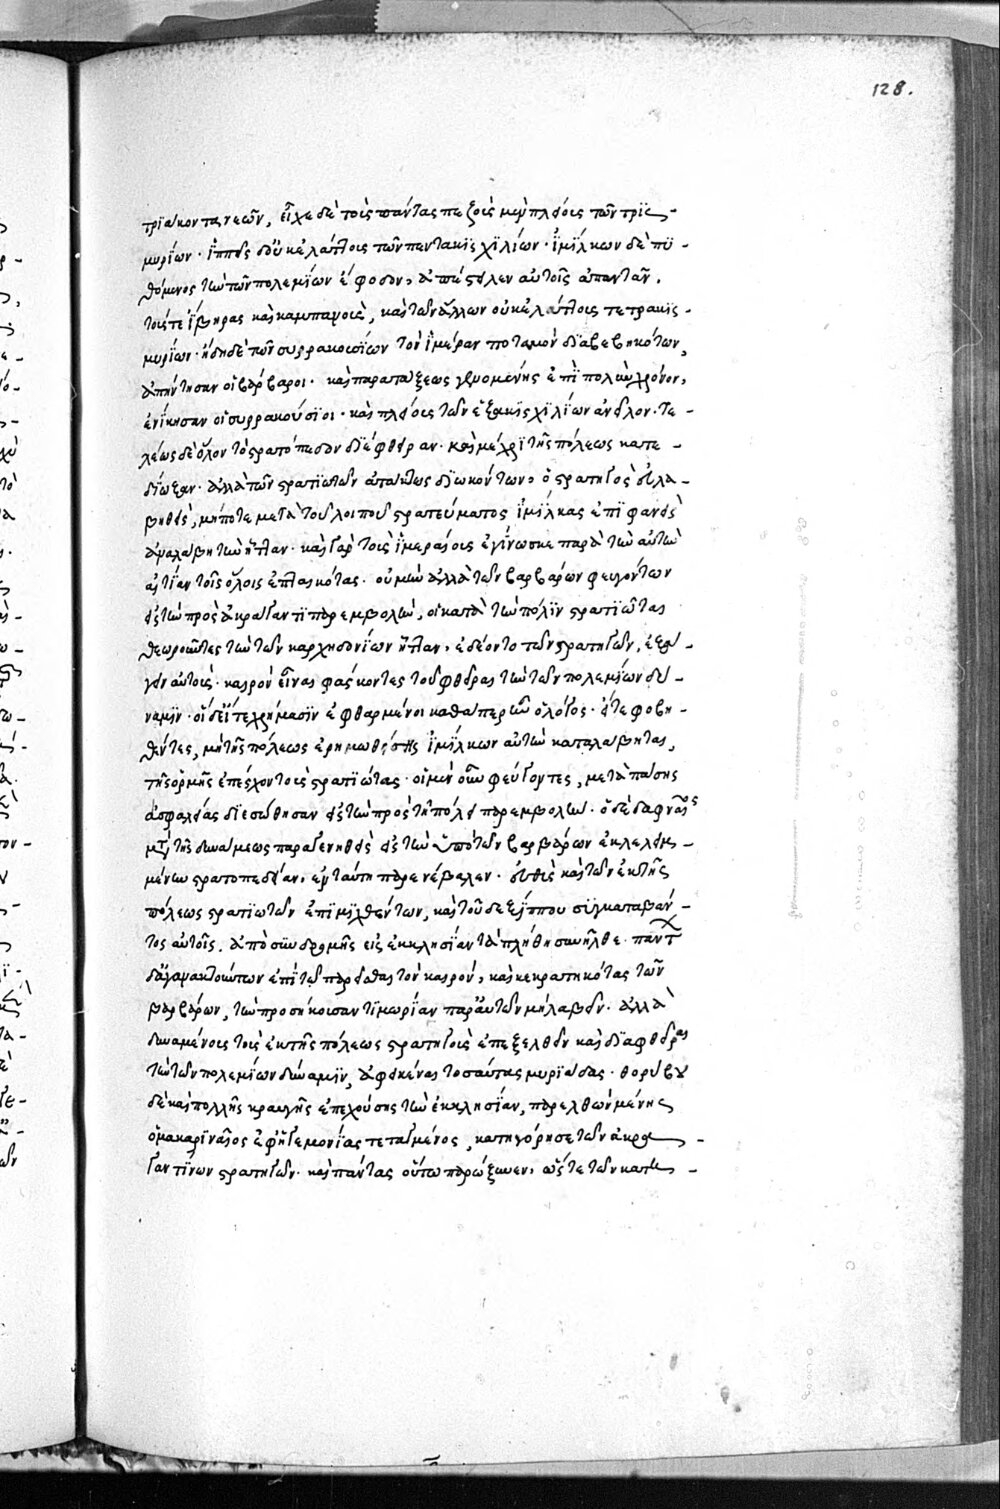 128.
τριάκοντα νεῶν, εἶχε δὲ τοὺς πάντας πεζοὺς μὲν πλείους τῶν τρισ-
μυρίων· ἱππεῖς δ' οὐκ ἐλάττους τῶν πεντακισχιλίων· ἰμίλκων δὲ πυ-
θόμενος τὴν τῶν πολεμίων ἔφοδον, ἀπέστειλεν αὐτοῖς ἀπαντᾶν.
τούς τε ἴβηρας καὶ καμπανοὺς, καὶ τῶν ἄλλων οὐκ ἐλάττους τετρακισ-
μυρίων· ἤδη δὲ τῶν συρρακουσίων τὸν ἱμέραν ποταμὸν διαβεβηκότων,
ἀπήντησαν οἱ βάρβαροι· καὶ παρατάξεως γενομένης ἐπὶ πολὺν χρόνον,
ἐνίκησαν οἱ συρρακούσιοι· καὶ πλείους τῶν ἑξακισχιλίων ἀνεῖλον· τε-
λέως δὲ ὅλον τὸ στρατόπεδον διέφθειραν· καὶ μέχρι τῆς πόλεως κατε-
δίωξαν· ἀλλὰ τῶν στρατιωτῶν ἀτάκτως διωκόντων, ὁ στρατηγὸς εὐλα-
βηθεὶς, μήποτε μετὰ τοῦ λοιποῦ στρατεύματος ἰμίλκας ἐπιφανεὶς
ἀναλάβῃ τὴν ἧτταν· καὶ γὰρ τοὺς ἱμεραίους ἐγίνωσκε παρὰ τὴν αὐτὴν
αἰτίαν τοῖς ὅλοις ἐπταικότας· οὐ μὴν ἀλλὰ τῶν βαρβάρων φευγόντων
εἰς τὴν πρὸς ἀκράγαντι παρεμβολὴν, οἱ κατὰ τὴν πόλιν στρατιῶται
θεωροῦντες τὴν τῶν καρχηδονίων ἧτταν, ἐδέοντο τῶν στρατηγῶν, ἐξά-
γειν αὐτοὺς· καιρὸν εἶναι φάσκοντες τοῦ φθεῖραι τὴν τῶν πολεμίων δύ-
ναμιν· οἱ δ' εἴτε χρήμασιν ἐφθαρμένοι καθάπερ ἦν ὁ λόγος· εἴτε φοβη-
θέντες, μὴ τῆς πόλεως ἐρημωθείσης ἰμίλκων αὐτὴν καταλάβηται,
τῆς ὁρμῆς ἐπέσχον τοὺς στρατιώτας· οἱ μὲν οὖν φεύγοντες, μετὰ πάσης
ἀσφαλείας διεσώθησαν εἰς τὴν πρὸς τῇ πόλει παρεμβολὴν· ὁ δὲ δαφναῖος
μετὰ τῆς δυνάμεως παραγενηθεὶς εἰς τὴν ὑπὸ τῶν βαρβάρων ἐκλελειμ-
μένην στρατοπεδείαν, ἐν ταύτῃ παρενέβαλεν· εὐθὺς καὶ τῶν ἐκ τῆς
πόλεως στρατιωτῶν ἐπιμιχθέντων, καὶ τοῦ δεξίππου συγκαταβάν-
τος αὐτοῖς. ἀπὸ συνδρομῆς εἰς ἐκκλησίαν τὰ πλήθη συνῆλθε· πάντ
δ' ἀγανακτούντων ἐπὶ τῷ παρεῖσθαι τὸν καιρὸν, καὶ κεκρατηκότας τῶν
βαρβάρων, τὴν προσήκουσαν τιμωρίαν παρ' αὐτῶν μὴ λαβεῖν· ἀλλὰ
δυναμένους τοὺς ἐκ τῆς πόλεως στρατηγοὺς ἐπεξελθεῖν καὶ διαφθεῖραι
τὴν τῶν πολεμίων δύναμιν, ἀφεικέναι τοσαύτας μυριάδας· θορύβου
δὲ καὶ πολλῆς κραυγῆς ἐπεχούσης τὴν ἐκκλησίαν, παρελθὼν μένης
ὁ μακαριναῖος ἐφ' ἡγεμονίας τεταγμένος, κατηγόρησε τῶν ἀκρα-
γαντίνων στρατηγῶν· καὶ πάντας οὕτω παρώξυνεν, ὥστε τῶν κατη-